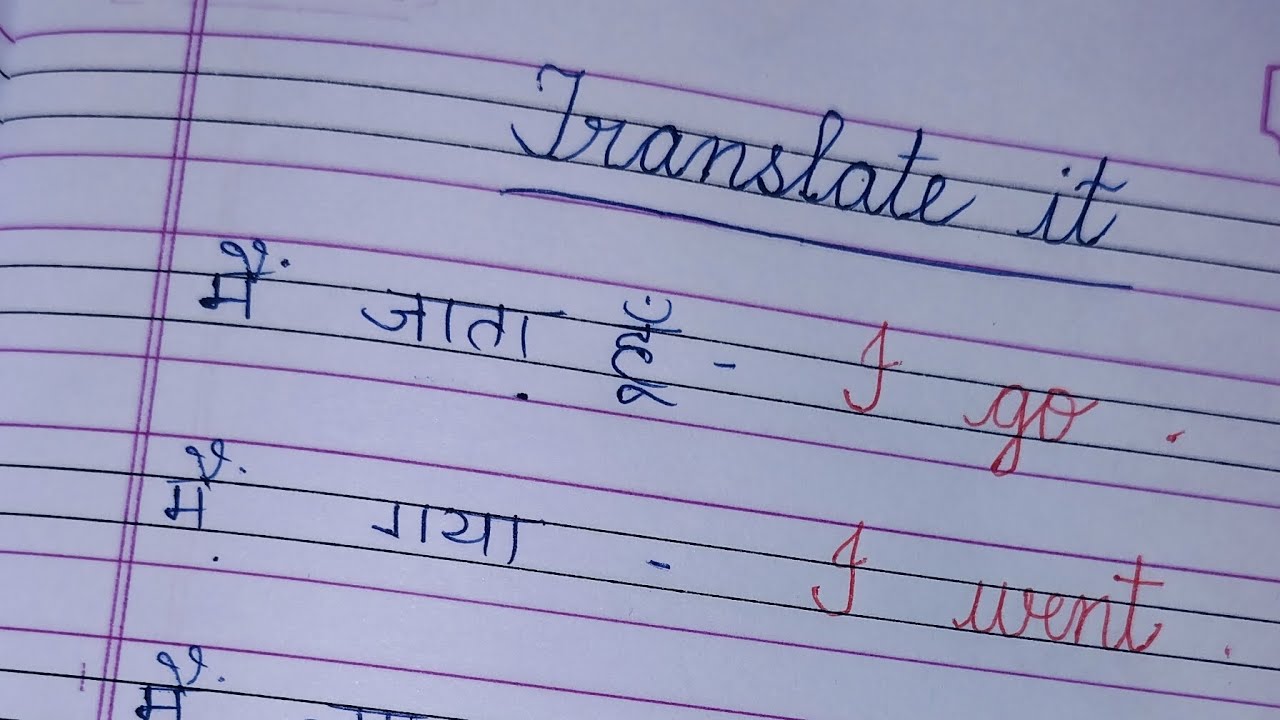 Translate it
मैं जाता हूँ - I go .
मैं गया - I went .
मैं